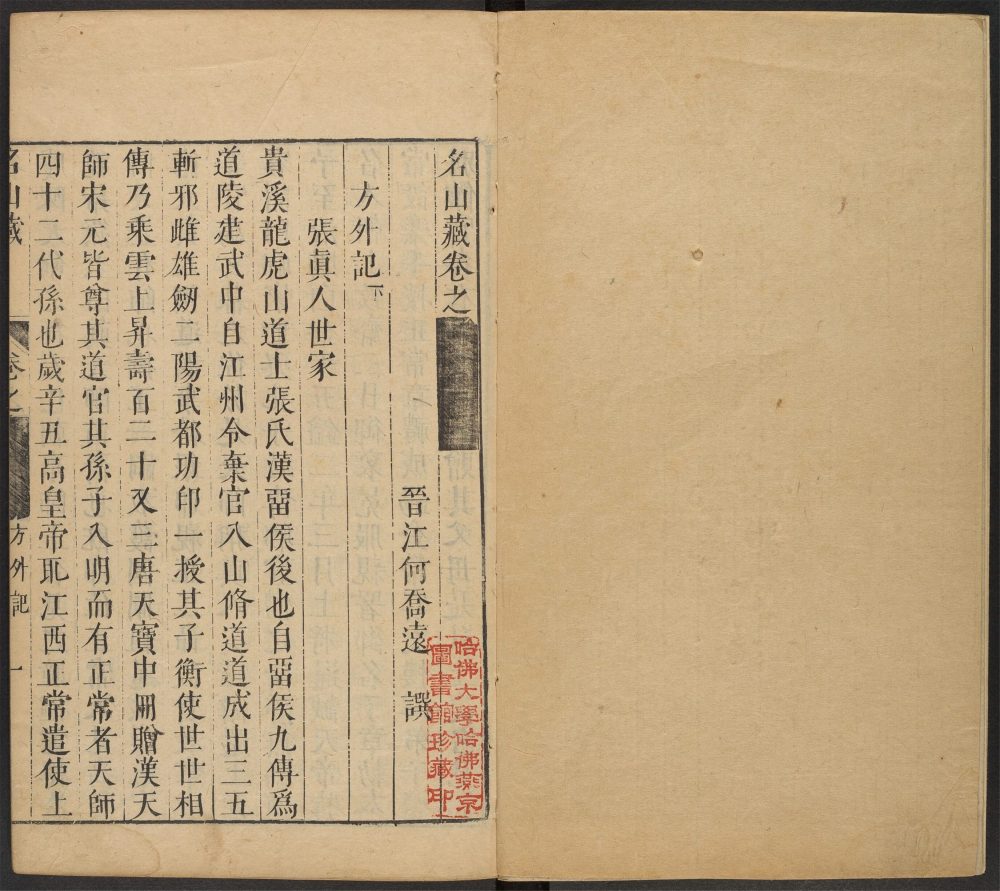 名山藏卷之
晉江何喬遠　譔
方外記下
張眞人世家
貴溪龍虎山道士張氏漢畱侯後也自畱侯九傳爲
道陵建武中自江州令棄官入山脩道道成出三五
斬邪雌雄劒二陽武都功印一授其子衡使世世相
傳乃乘雲上昇壽百二十又三唐天寶中冊贈漢天
師宋元皆尊其道官其孫子入明而有正常者天師
四十二代孫也歲辛丑高皇帝取江西正常遣使上
名山藏
卷之
方外記
一
哈佛大學哈佛燕京
圖書館珍藏印